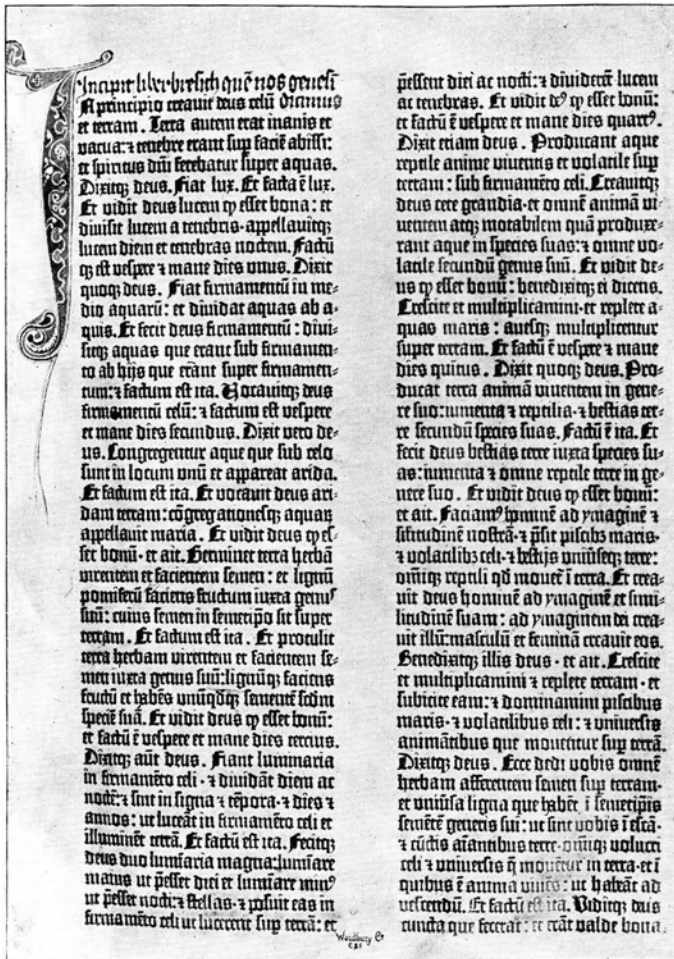 Incipit liber bresith quē nos genesī
A principio creauit deus celū dicimus
et terram. Terra autem erat inanis et
vacua: ⁊ tenebre erant sup faciē abissi:
et spiritus dn̄i ferebatur super aquas.
Dixitqꝫ deus. Fiat lux. Et facta ē lux.
Et vidit deus lucem ꝙ esset bona: et
diuisit lucem a tenebris· appellauitqꝫ
lucem diem et tenebras noctem. Factū
qꝫ est vespere ⁊ mane dies vnus. Dixit
quoqꝫ deus. Fiat firmamentū in me-
dio aquarū: et diuidat aquas ab a-
quis. Et fecit deus firmamentū: diui-
sitqꝫ aquas que erant sub firmamen-
to ab hijs que erant super firmamen-
tum: ⁊ factum est ita. Vocauitqꝫ deus
firmamentū celū: ⁊ factum est vespere
et mane dies secundus. Dixit vero de-
us. Congregentur aque que sub celo
sunt in locum vnū et appareat arida.
Et factum est ita. Et vocauit deus ari-
dam terram: cōgregationesqꝫ aquaꝝ
appellauit maria. Et vidit deus ꝙ es-
set bonū· et ait. Germinet terra herbā
virentem et facientem semen: et lignū
pomiferū faciens fructum iuxta genus
suū: cuius semen in semetipo sit super
terram. Et factum est ita. Et protulit
terra herbam virentem et facientem se-
men iuxta genus suū: lignūqꝫ faciens
fructū et habēs vnūqdqꝫ sementē scdm
speciē suā. Et vidit deus ꝙ esset bonū:
et factū ē vespere et mane dies tercius.
Dixitqꝫ aūt deus. Fiant luminaria
in firmamēto celi· ⁊ diuidāt diem ac
noctē: ⁊ sint in signa ⁊ tēpora· ⁊ dies ⁊
annos: ut luceāt in firmamēto celi et
illuminēt terrā. Et factū est ita. Fecitqꝫ
deus duo luminaria magna: luminare
maius ut p̄esset diei et luminare minꝰ
ut p̄esset nocti: ⁊ stellas· ⁊ posuit eas in
firmamēto celi ut lucerent sup terrā: et
p̄essent diei ac nocti: ⁊ diuiderēt lucem
ac tenebras. Et vidit deꝰ ꝙ esset bonū:
et factū ē vespere et mane dies quartꝰ.
Dixit etiam deus. Producant aque
reptile anime viuentis et volatile sup
terram: sub firmamēto celi. Creauitqꝫ
deus cete grandia· et omnē animā vi-
uentem atqꝫ motabilem quā produxe-
rant aque in species suas: ⁊ omne vo-
latile secundū genus suū. Et vidit de-
us ꝙ esset bonū: benedixitqꝫ ei dicens.
Crescite et multiplicamini· et replete a-
quas maris: auesqꝫ multiplicentur
super terram. Et factū ē vespere ⁊ mane
dies quītus. Dixit quoqꝫ deus. Pro-
ducat terra animā viuentem in gene-
re suo: iumenta ⁊ reptilia· ⁊ bestias ter-
re secundū species suas. Factū ē ita. Et
fecit deus bestias terre iuxta species su-
as: iumenta ⁊ omne reptile terre in ge-
nere suo. Et vidit deus ꝙ esset bonū:
et ait. Faciamꝰ hominē ad ymaginē ⁊
silitudinē nostrā· ⁊ p̄sit piscibꝫ maris·
⁊ volatilibꝫ celi· ⁊ bestijs vniūseqꝫ terre:
omīqꝫ reptili qd mouet̄ ī terra. Et crea-
uit deus hominē ad ymaginē et simi-
litudinē suam: ad ymaginem dei crea-
uit illū: masculū et feminā creauit eos.
Benedixitqꝫ illis deus· et ait. Crescite
et multiplicamini ⁊ replete terram· et
subicite eam: ⁊ dominamini piscibus
maris· ⁊ volatilibus celi: ⁊ vniuersis
animātibus que mouentur sup terrā.
Dixitqꝫ deus. Ecce dedi vobis omnē
herbam afferentem semen sup terram·
et vniūsa ligna que habēt ī semetip̄is
semētē generis sui: ut sint vobis ī escā·
⁊ cūctis aīantibus terre· omīqꝫ volucri
celi ⁊ vniuersis q̄ mouētur in terra· et ī
quibus ē anima viuēs: ut habeāt ad
vescendū. Et factū est ita. Viditqꝫ deus
cuncta que fecerat: et erāt valde bona.
Woodbury Co